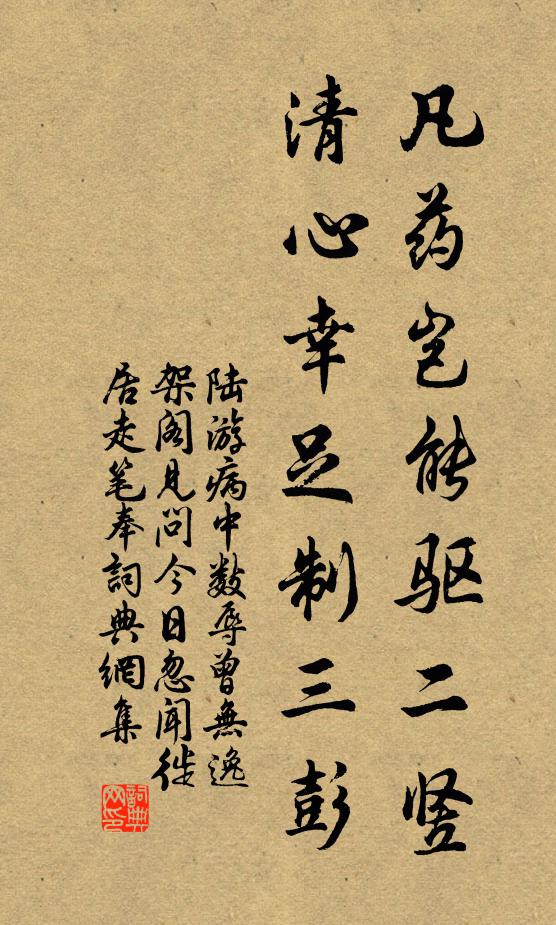 凡药岂能驱二竖
清心幸足制三彭
陆游病中数辱曾無逸
架阁见问今日忽闻徙
居走笔奉詞典網集
詞典网印